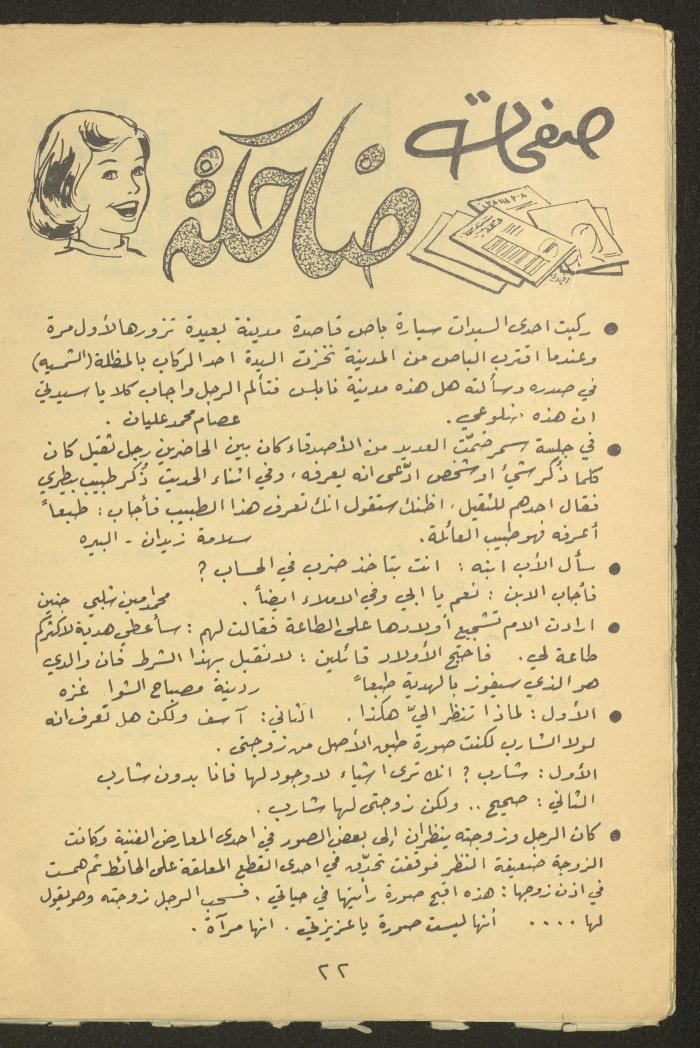 صفحات
ضاحكة
● ركبت احدى السيدات سيارة باص قاصدة مدينة بعيدة تزورها لأول مرة
وعندما اقترب الباص من المدينة نخزت السيدة احد الركاب بالمظلة (الشمسيه)
في صدره وسألته هل هذه مدينة نابلس فتألم الرجل واجاب كلا يا سيدتي
ان هذه ضلوعي. عصام محمد عليان .
● في جلسة سمر ضمّت العديد من الأصدقاء كان بين الحاضرين رجل ثقيل كان
كلما ذُكر شيءٌ او شخص ادّعى انه يعرفه ، وفي اثناء الحديث ذُكر طبيب بيطري
فقال احدهم للثقيل ، اظنك ستقول انك تعرف هذا الطبيب فأجاب : طبعاً
أعرفه فهو طبيب العائلة. سلامة زيدان - البيره
● سأل الأب ابنه : انت بتاخذ ضرب في الحساب ؟
فأجاب الابن : نعم يا ابي وفي الاملاء ايضاً . محمد امين شلبي جنين
● ارادت الام تشجيع أولادها على الطاعة فقالت لهم : سأعطي هدية لاكثركم
طاعة لي . فاحتج الأولاد قائلين : لا نقبل بهذا الشرط فان والدي
هو الذي سيفوز بالهدية طبعاً ردينة مصباح الشوا غزه
● الأول : لماذا تنظر اليّ هكذا . الثاني : آسف ولكن هل تعرف انه
لولا الشارب لكنت صورة طبق الأصل من زوجتي .
الأول : شارب ؟ انك ترى اشياء لا وجود لها فانا بدون شارب
الثاني : صحيح .. ولكن زوجتي لها شارب .
● كان الرجل وزوجته ينظران إلى بعض الصور في احدى المعارض الفنية وكانت
الزوجة ضعيفة النظر فوقفت تحدّق في احدى القطع المعلقة على الحائط ثم همست
في اذن زوجها : هذه اقبح صورة رأيتها في حياتي . فسحب الرجل زوجته وهو يقول
لها .... أنها ليست صورة يا عزيزتي . انها مرآة .
٢٢